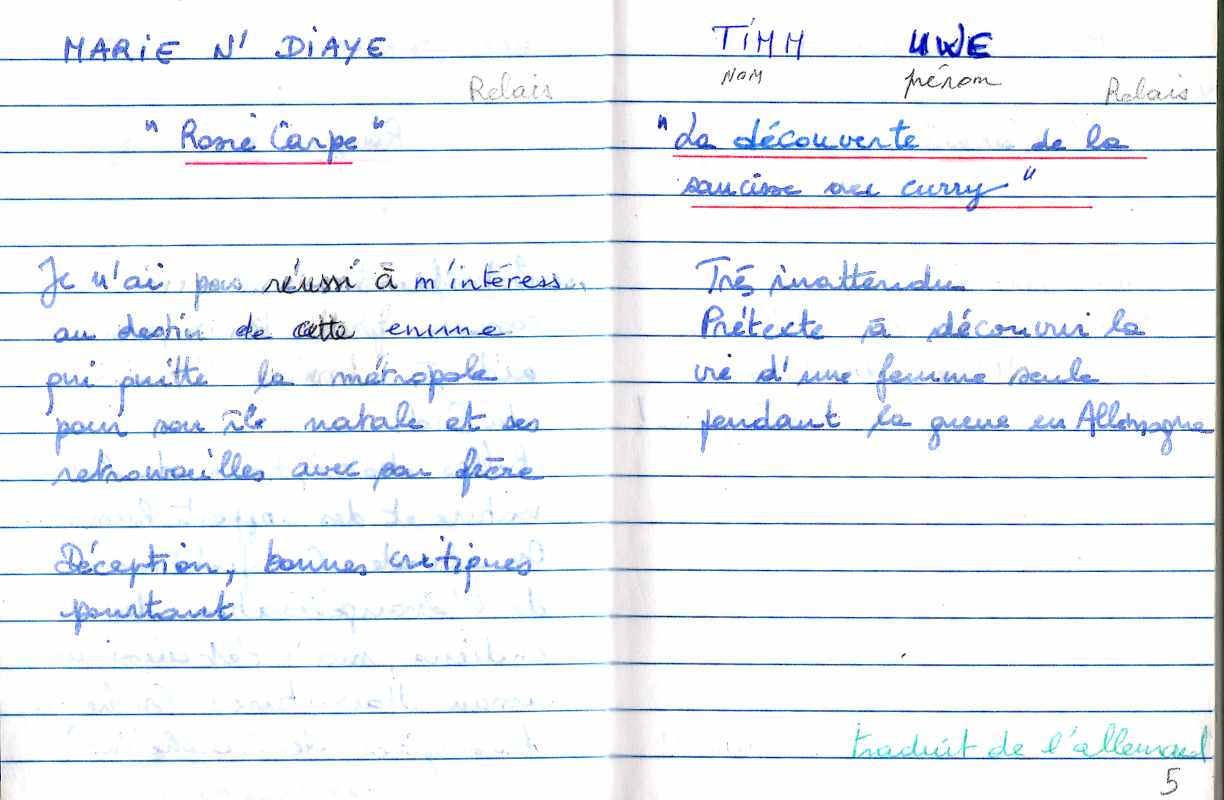 MARIE N' DIAYE
Relais
" Rosie Carpe "
Je n'ai pas réussi à m'intéress
au destin de cette emme
qui quitte la métropole
pour son île natale et ses
retrouvailles avec son frère
Déception, bonnes critiques
pourtant
TIMM UWE
NOM prénom
Relais
" La découverte de la
saucisse au curry "
Très inattendu
Prétexte à découvrir la
vie d'une femme seule
pendant la guerre en Allemagne
traduit de l'allemand
5